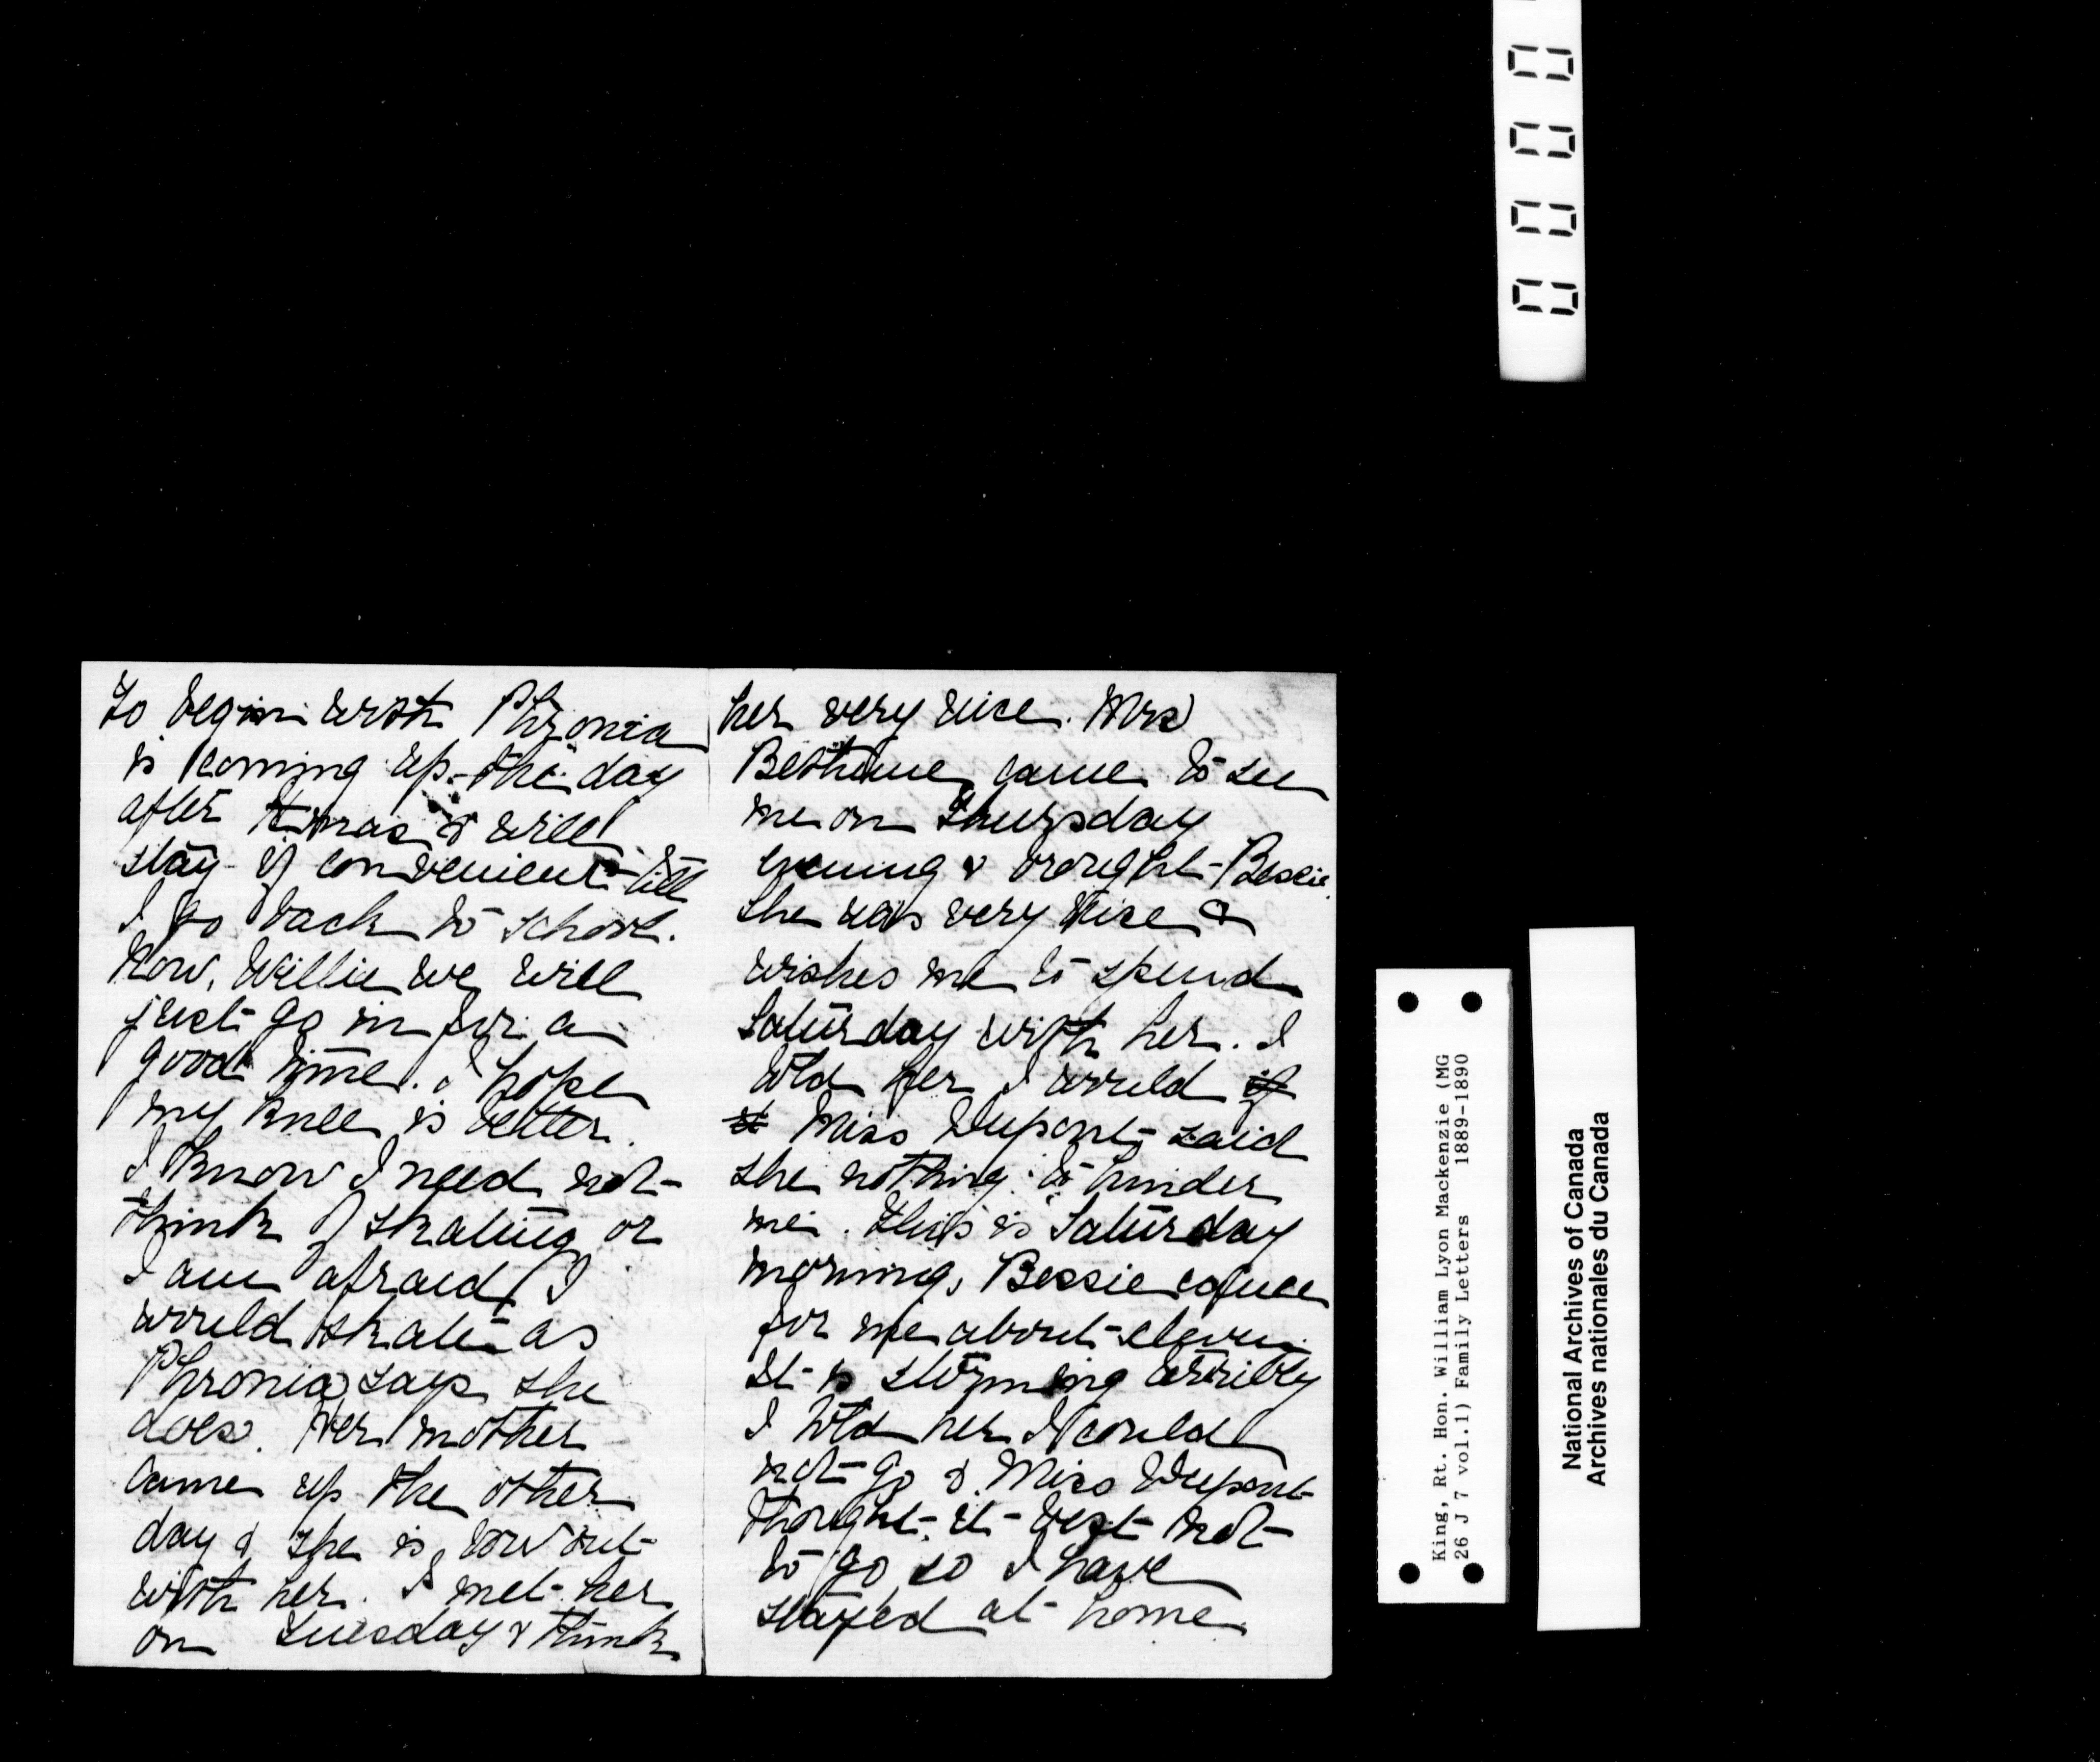 To begin with Phronia
is coming up the day
after Xmas & will
stay if convenient till
I go back to school.
Now, Willie we will
just go in for a
good time. I hope
my knee is better.
I know I need not
think of skating or
I am afraid I
would skate as
Phronia says she
does. Her mother
came up the other
day & she is now out
with her. I met her
on Tuesday & think
her very nice. Mrs
Bethune came to see
me on Thursday
evening & brought Bessie
she was very nice &
wishes me to spend
Saturday with her. I
told her I would if
Miss Dupont said
she nothing to hinder
me. This is Saturday
morning, Bessie came
for me about eleven
It is storming terribly
I told her I could
not go & Miss Dupont
thought it best not
to go so I have
stayed at home
0 0 0 0
King, Rt. Hon. William Lyon Mackenzie (MG
26 J 7 vol.1) Family Letters 1889-1890
National Archives of Canada
Archives nationales du Canada